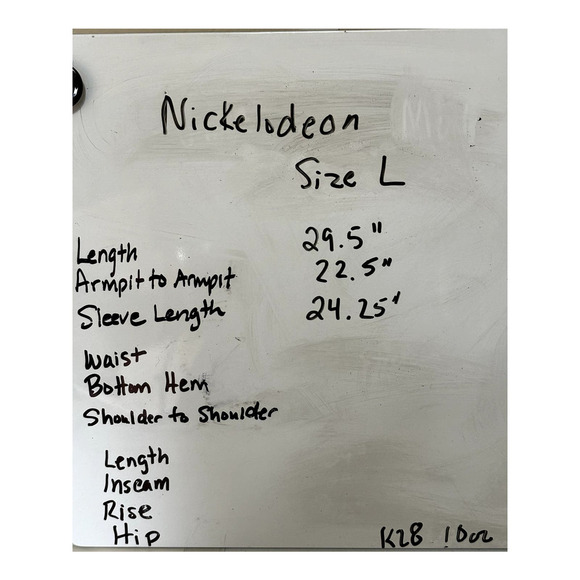 Nickelodeon
Size L
Length 29.5"
Armpit to Armpit 22.5"
Sleeve Length 24.25"
Waist
Bottom Hem
Shoulder to Shoulder
Length
Inseam
Rise
Hip
K28 10oz